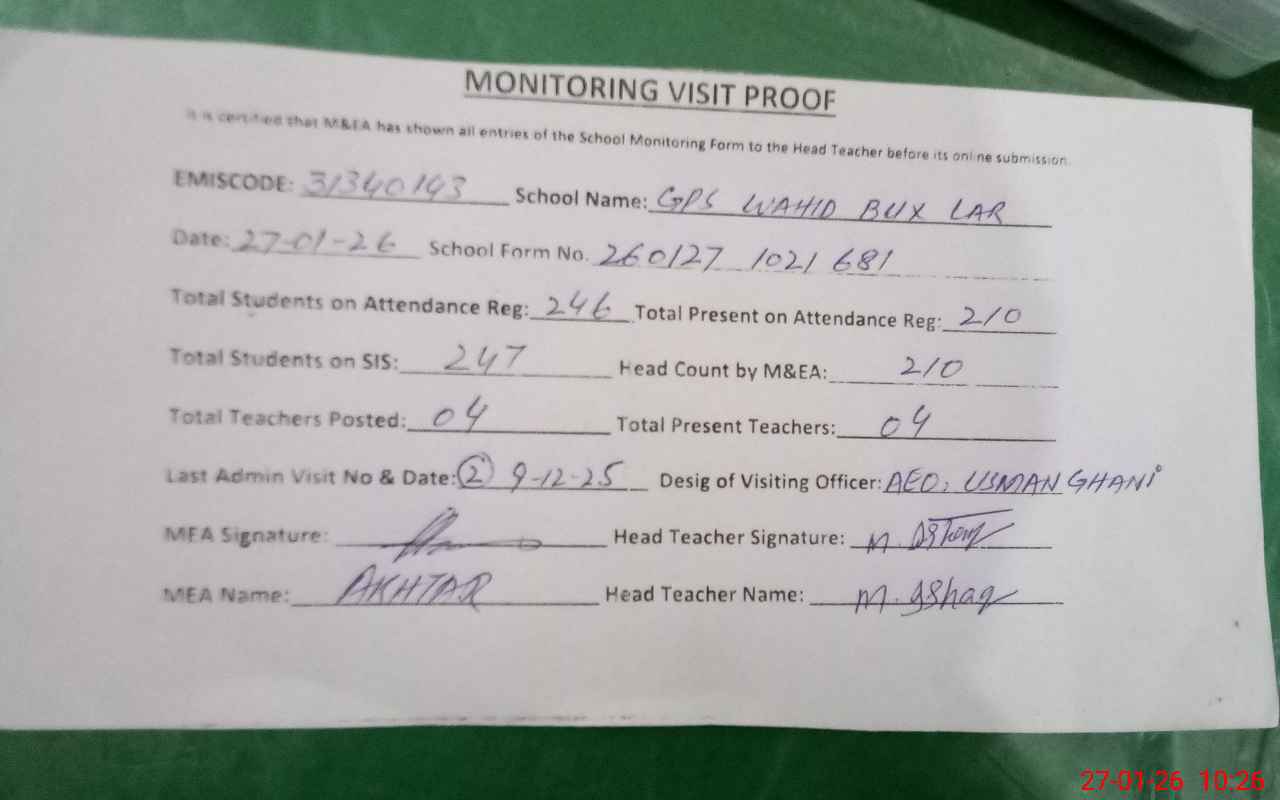 MONITORING VISIT PROOF
It is certified that M&EA has shown all entries of the School Monitoring Form to the Head Teacher before its online submission.
EMISCODE: 31340143 School Name: GPS WAHID BUX LAR
Date: 27-01-26 School Form No. 260127 1021 681
Total Students on Attendance Reg: 246 Total Present on Attendance Reg: 210
Total Students on SIS: 247 Head Count by M&EA: 210
Total Teachers Posted: 04 Total Present Teachers: 04
Last Admin Visit No & Date: (2) 9-12-25 Desig of Visiting Officer: AEO, USMAN GHANI
MEA Signature: Head Teacher Signature: M.
MEA Name: AKHTAR Head Teacher Name: M. Ishaq
27-01-26 10:26